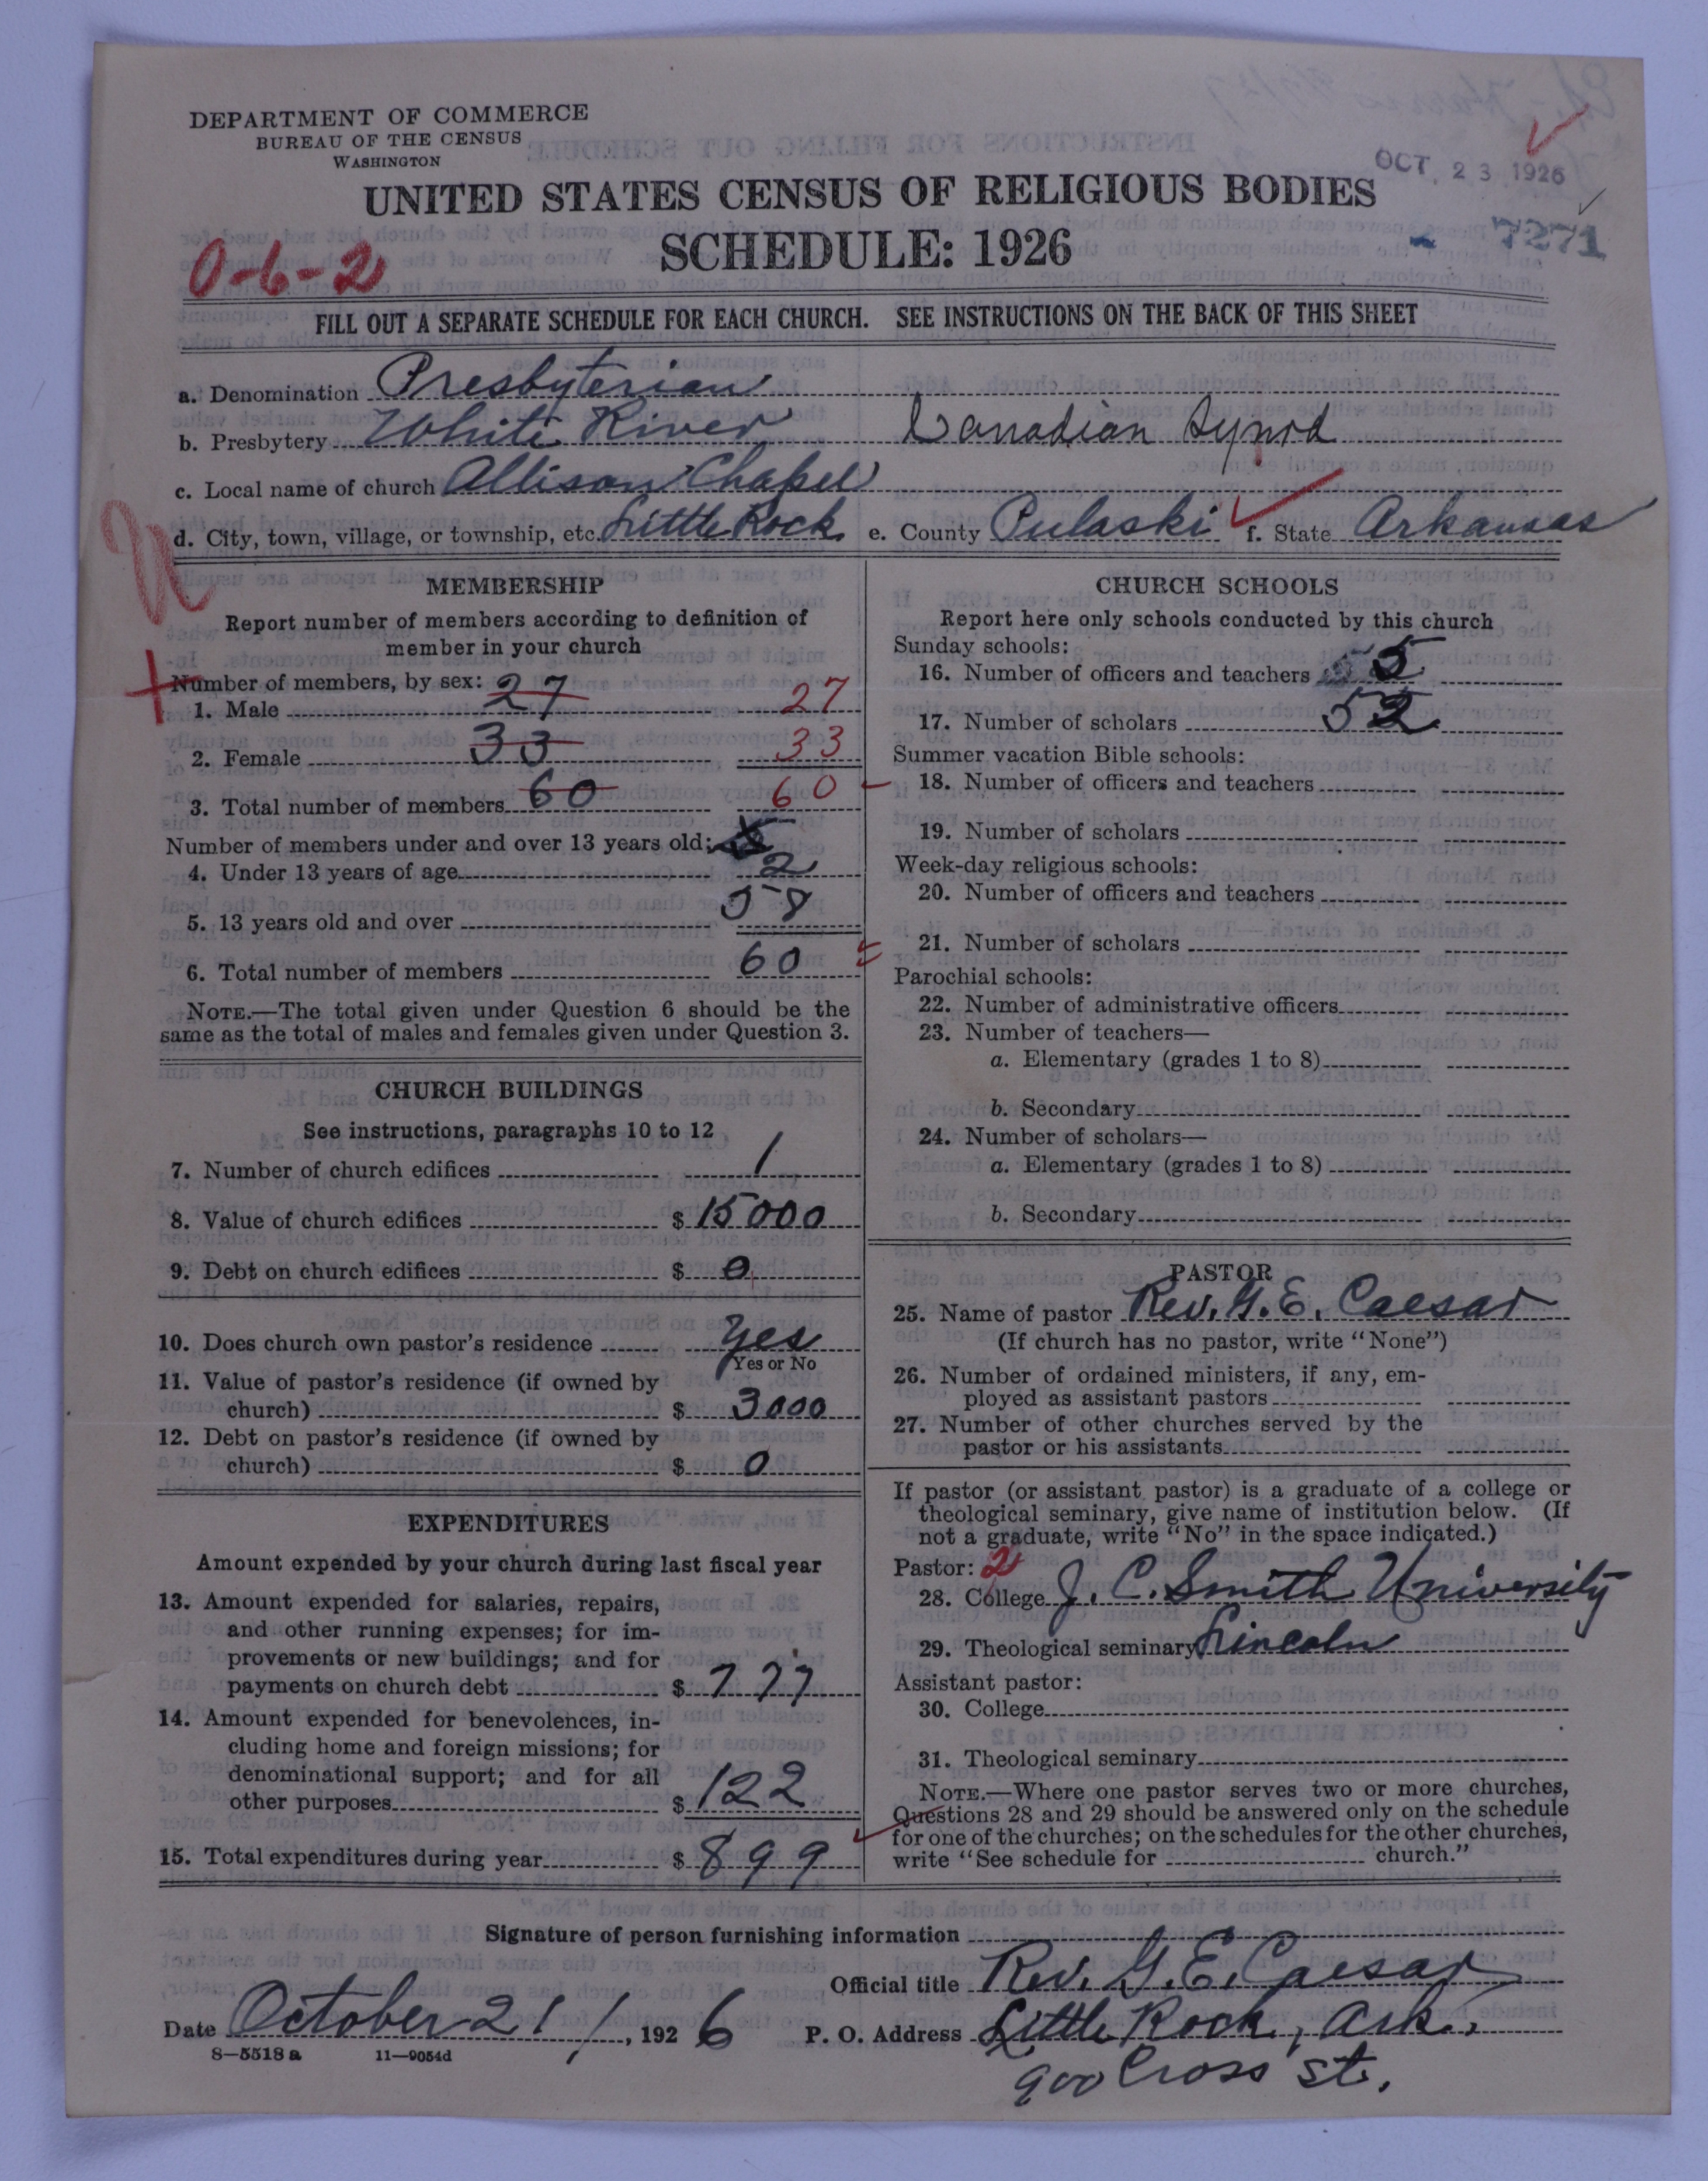 DEPARTMENT OF COMMERCE
BUREAU OF THE CENSUS
WASHINGTON
OCT 23 1926
UNITED STATES CENSUS OF RELIGIOUS BODIES
SCHEDULE: 1926
7271
0-6-2
FILL OUT A SEPARATE SCHEDULE FOR EACH CHURCH. SEE INSTRUCTIONS ON THE BACK OF THIS SHEET
a. Denomination Presbyterian
b. Presbytery White River Canadian Synod
c. Local name of church Allison Chapel
d. City, town, village, or township, etc. Little Rock e. County Pulaski f. State Arkansas
MEMBERSHIP
Report number of members according to definition of
member in your church
Number of members, by sex:
1. Male 27 27
2. Female 33 33
3. Total number of members 60 60
Number of members under and over 13 years old:
4. Under 13 years of age 2
5. 13 years old and over 58
6. Total number of members 60
NOTE.—The total given under Question 6 should be the
same as the total of males and females given under Question 3.
CHURCH BUILDINGS
See instructions, paragraphs 10 to 12
7. Number of church edifices 1
8. Value of church edifices $ 15000
9. Debt on church edifices $ 0
10. Does church own pastor's residence Yes
Yes or No
11. Value of pastor's residence (if owned by
church) $ 3000
12. Debt on pastor's residence (if owned by
church) $ 0
EXPENDITURES
Amount expended by your church during last fiscal year
13. Amount expended for salaries, repairs,
and other running expenses; for im-
provements or new buildings; and for
payments on church debt $ 777
14. Amount expended for benevolences, in-
cluding home and foreign missions; for
denominational support; and for all
other purposes $ 122
15. Total expenditures during year $ 899
CHURCH SCHOOLS
Report here only schools conducted by this church
Sunday schools:
16. Number of officers and teachers 5
17. Number of scholars 52
Summer vacation Bible schools:
18. Number of officers and teachers
19. Number of scholars
Week-day religious schools:
20. Number of officers and teachers
21. Number of scholars
Parochial schools:
22. Number of administrative officers
23. Number of teachers—
a. Elementary (grades 1 to 8)
b. Secondary
24. Number of scholars—
a. Elementary (grades 1 to 8)
b. Secondary
PASTOR
25. Name of pastor Rev. G. E. Caesar
(If church has no pastor, write "None")
26. Number of ordained ministers, if any, em-
ployed as assistant pastors
27. Number of other churches served by the
pastor or his assistants
If pastor (or assistant pastor) is a graduate of a college or
theological seminary, give name of institution below. (If
not a graduate, write "No" in the space indicated.)
Pastor: 2
28. College J. C. Smith University
29. Theological seminary Lincoln
Assistant pastor:
30. College
31. Theological seminary
NOTE.—Where one pastor serves two or more churches,
Questions 28 and 29 should be answered only on the schedule
for one of the churches; on the schedules for the other churches,
write "See schedule for church."
Signature of person furnishing information
Official title Rev. G. E. Caesar
Date October 21, 1926 P. O. Address Little Rock, Ark.,
8—5518 a 11—9054d
900 Cross St.